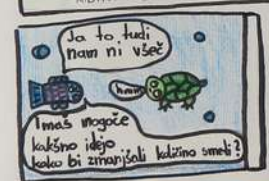 Ja to tudi
nam ni všeč
hmm
Imaš mogoče
kakšno idejo
kako bi zmanjšali količino smeti?